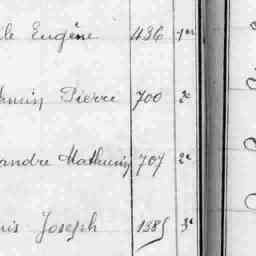 Eugène 436 1er
Pierre 700 2e
andre Mathurin 707 2e
Joseph 1385 3e